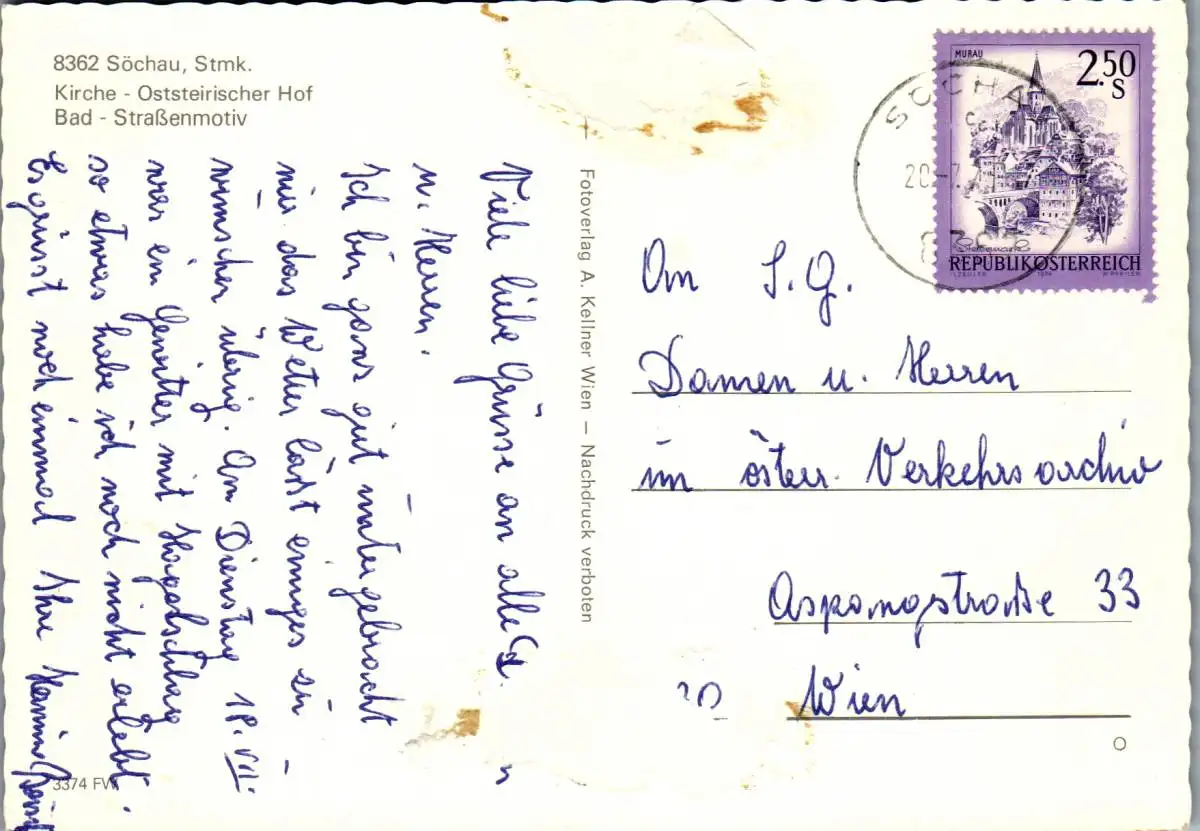 8362 Söchau, Stmk.
Kirche - Oststeirischer Hof
Bad - Straßenmotiv
Viele liebe Grüsse an alle
u. Herren.
Ich bin ganz gut untergebracht
nur das Wetter lässt einiges zu
wünschen übrig. Am Dienstag 18.VII.
war ein Gewitter mit Hagelschlag
so etwas habe ich noch nicht erlebt.
Es grüsst noch einmal Ihre
3374 FW
Fotoverlag A. Kellner Wien – Nachdruck verboten
MURAU
2.50
S
Steiermark
REPUBLIK ÖSTERREICH
1974
SÖCHA
20.-7.
An S.G.
Damen u. Herren
im österr. Verkehrsarchiv
Aspangstraße 33
Wien